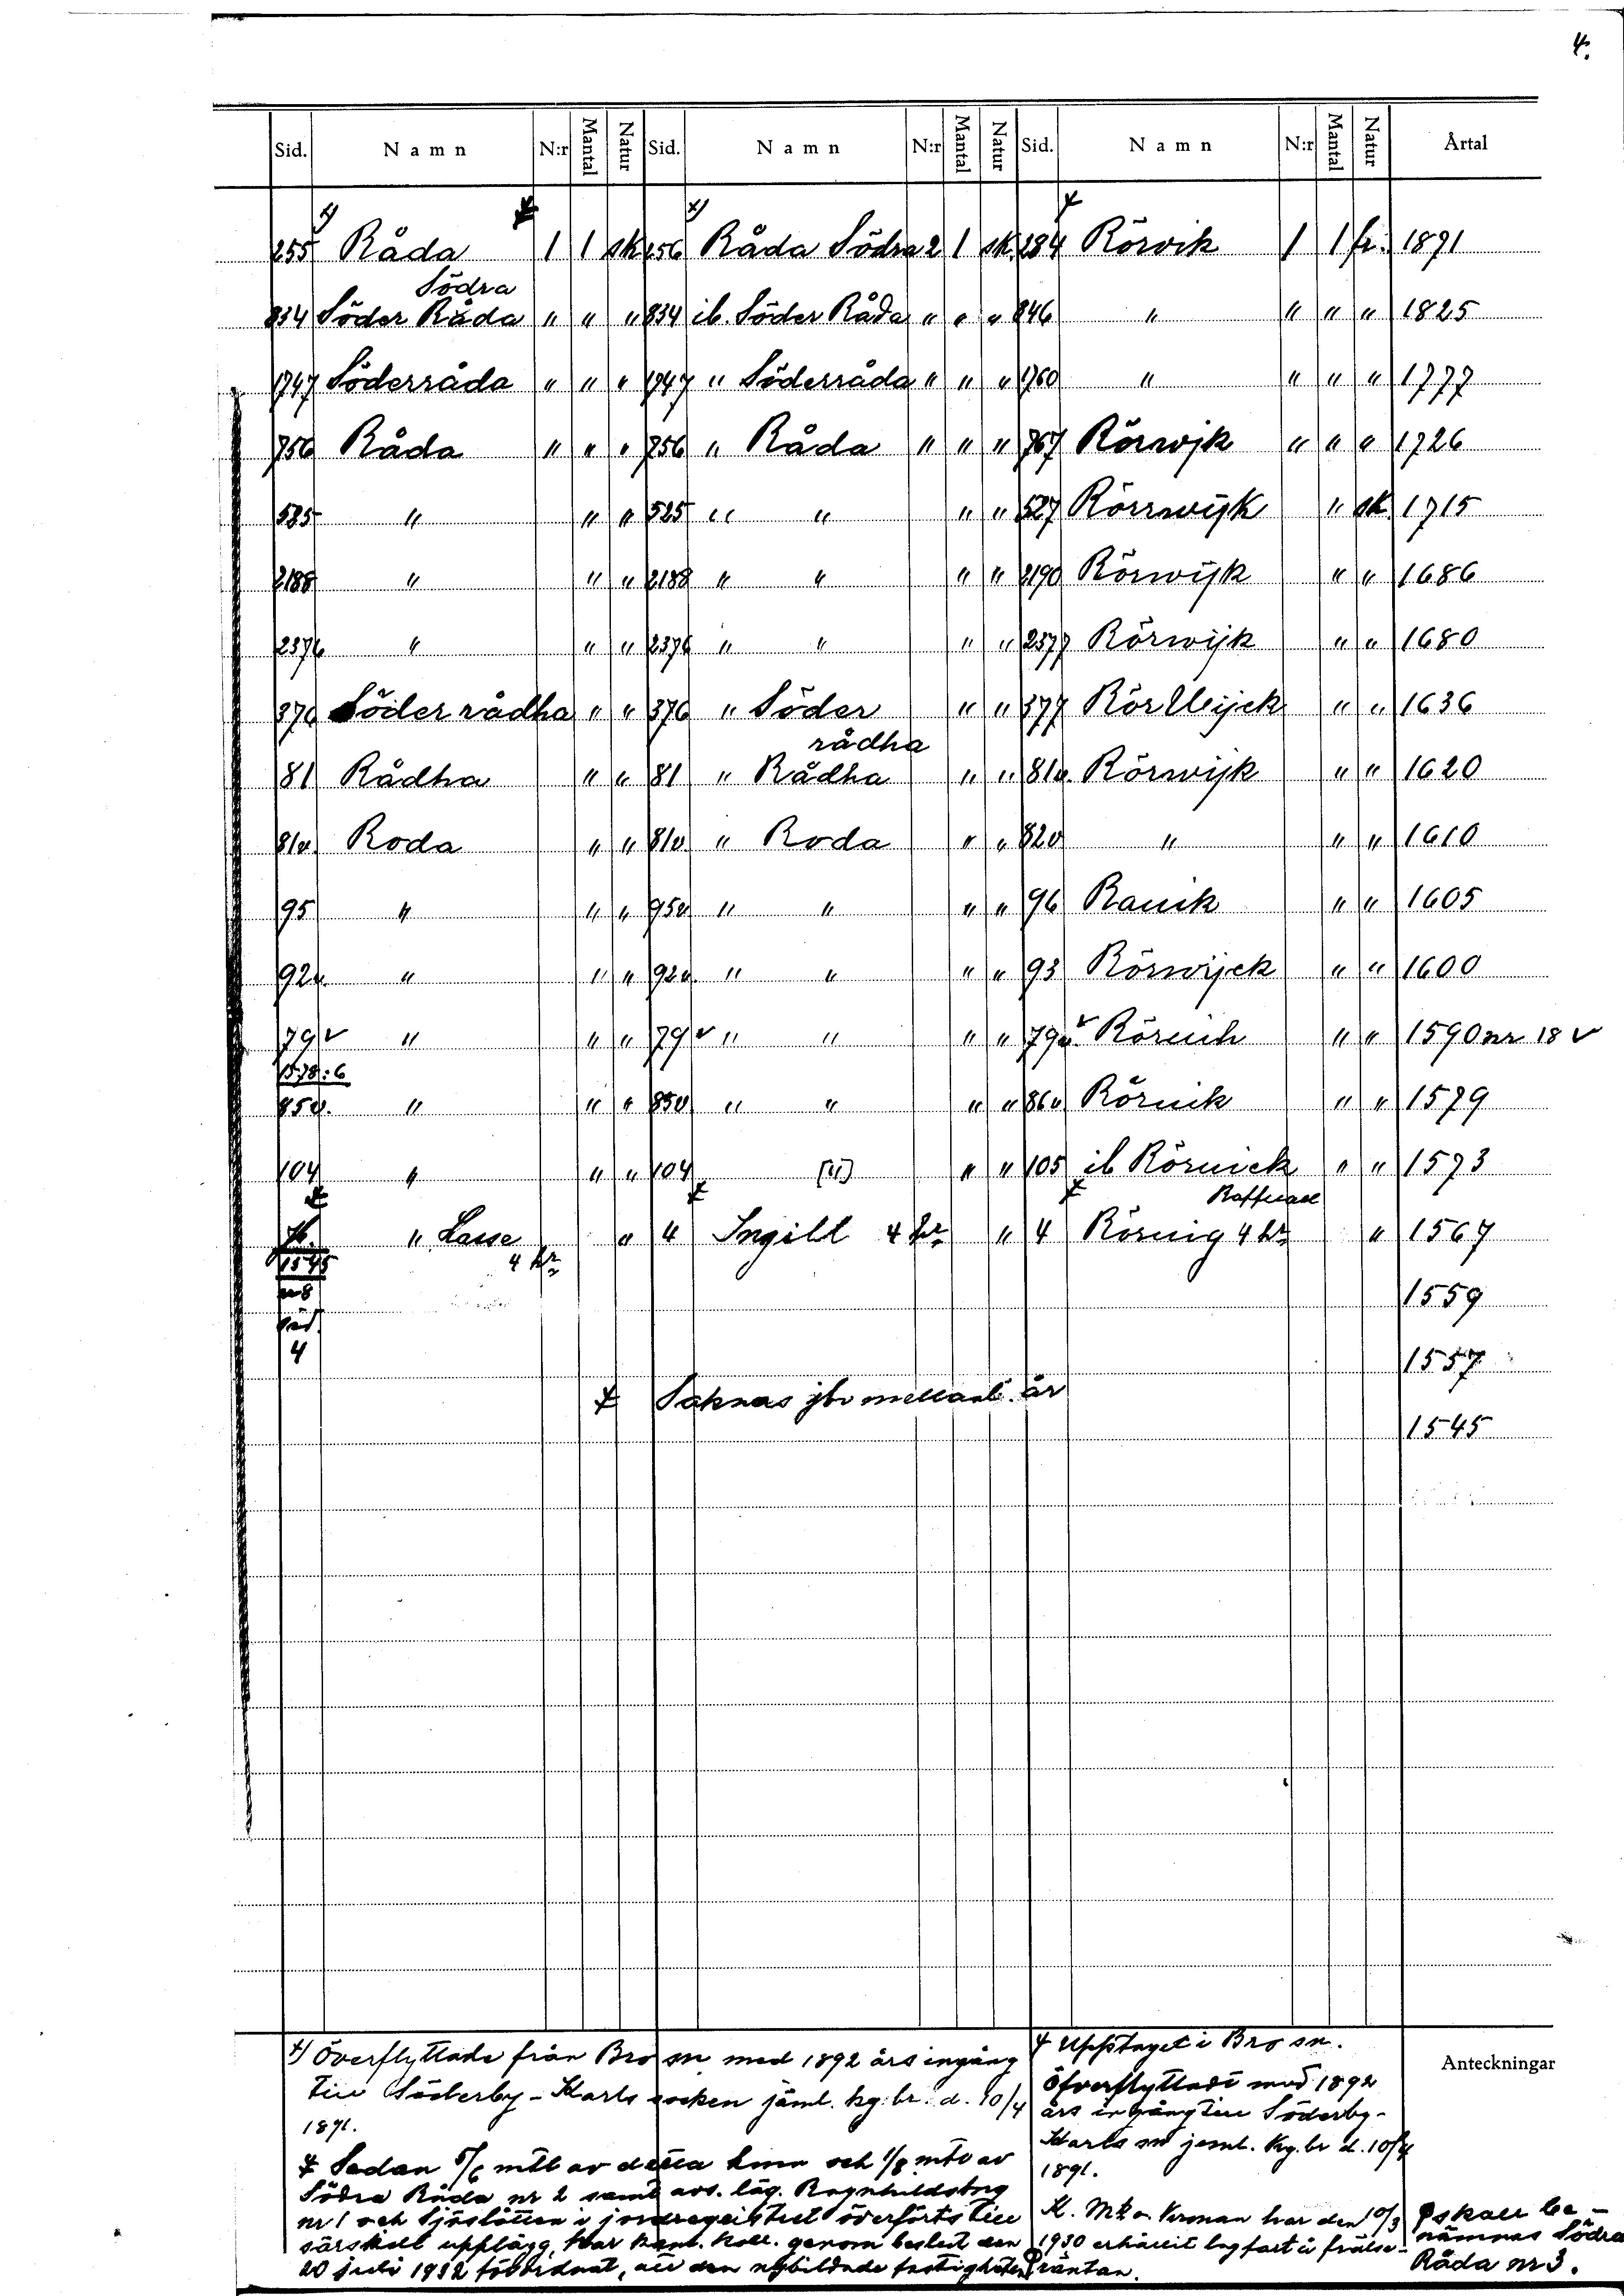 4.
Sid. Namn N:r Mantal Natur Sid. Namn N:r Mantal Natur Sid. Namn N:r Mantal Natur Årtal
255 x) Råda 1 1 sk 256 x) Råda Södra 2 1 sk. 284 Rörvik 1 1 fr. 1891
Södra
834 Söder Råda " " " 834 ib. Söder Råda " " " 846 " " " " 1825
1747 Söderråda " " " 1747 " Söderråda " " " 1760 " " " " 1777
756 Råda " " " 756 " Råda " " " 767 Rörwjk " " " 1726
525 " " " 525 " " " " 527 Rörrwijk " sk. 1715
2188 " " " 2188 " " " " 2190 Rörwijk " " 1686
2376 " " " 2376 " " " " 2377 Rörwijk " " 1680
376 Söder rådha " " 376 " Söder " " 377 Rör Weijck " " 1636
rådha
81 Rådha " " 81 " Rådha " " 81v. Rörwijk " " 1620
81v. Roda " " 81v " Roda " " 82v " " " 1610
95 " " " 95v " " " " 96 Rauik " " 1605
92v. " " " 92v. " " " " 93 Rörwijck " " 1600
79 v " " " 79 v " " " " 79v. Röruich " " 1590 nr 18 v
1578:6
85v. " " " 85v " " " " 86v Röruik " " 1579
104 " " " 104 ["] " " 105 ib Röruick " " 1573
" Lasse " 4 Ingill 4 hr " 4 Röruig 4 hr " 1567
1545 4 hr
nr 8 1559
4 1557
Saknas jbr mellanl. år
1545
x) Överflyttade från Bro sn med 1892 års ingång
till Söderby-Karls socken jäml. kg. br. d. 10/4
1891.
Sedan 5/6 mtl av detta hmn och 1/8 mtl av
Södra Råda nr 2 samt avs. läg. Ragnhildsborg
nr 1 och Sjöslätten i jordregistret överförts till
särskilt upplägg, har kam. koll. genom beslut den
20 juli 1932 förordnat, att den nybildade fastigheten
Upptaget i Bro sn.
Öfverflyttadt med 1892
års ingång till Söderby-
Karls sn jeml. Kg. br d. 10/4
1891.
K. M. o. Kronan har den 10/3
1930 erhållit lagfart å frälse-
räntan.
Anteckningar
skall be-
nämnas Södra
Råda nr 3.